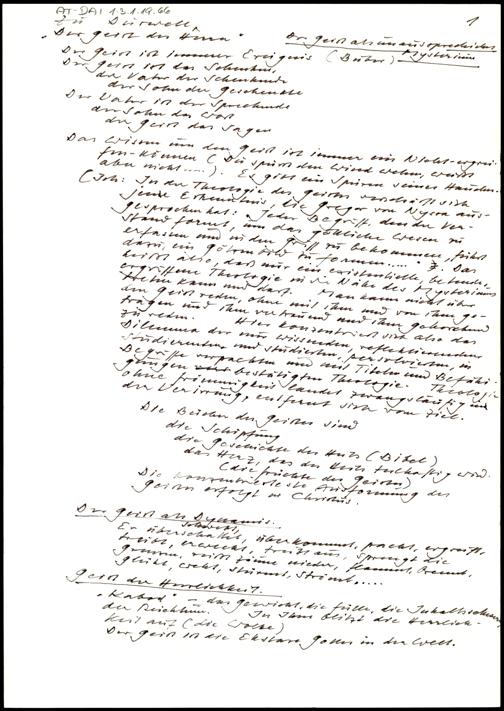 AT-DAI 13.1.19.66
1
Zu Dürwell,
"Der Geist des Herrn"
Der Geist als unaussprechliches
Mysterium
Der Geist ist immer Ereignis (Buber)
Der Geist ist das Schenken,
der Vater der Schenkende
der Sohn der Geschenkte
Der Vater ist der Sprechende
der Sohn das Wort
der Geist das Sagen
Das Wissen um den Geist ist immer ein Nicht-ergrei-
fen-können (Du spürst den Wind wehen, weißt
aber nicht ....). Es gibt ein Spüren seines Hauchens
(Joh: In der Theologie des Geistes verschärft sich
jene Erkenntnis, die Gregor von Nyssa aus-
gesprochen hat: "Jeder Begriff, den der Ver-
stand formt, um das göttliche Wesen zu
erfassen und in den Griff zu bekommen, führt
dazu, ein Götzenbild zu formen....." Das
heißt also, daß nur ein existentielle
ergriffene Theologie in die Nähe des Mysteriums
kann und darf. Man kann nicht über
den Geist reden, ohne mit ihm und von ihm ge-
tragen und ihm vertrauend und ihm gehorchend
zu reden. Hier konzentriert sich also das
Dilemma der nur wissenden, reflektierenden
studierenden und studierten, in
Begriffe verpackten und mit Titeln und Befähi-
gungen bestätigten Theologie. Theologie
ohne Frömmigkeit landet zwangsläufig in
der Verirrung, entfernt sich vom Ziel.
Die Zeichen des Geistes sind
die Schöpfung
die Geschichte des Heils (Bibel)
das Herz, das des Heils teilhaftig wird.
(die Früchte des Geistes)
Die konzentrierteste Ausformung des
Geistes erfolgt in Christus.
Der Geist als Dynamis.
Er überschattet, überkommt, packt, ergreift,
treibt, erweckt, treibt aus, sprengt die
Grenzen, reißt Zäune nieder, flammt, brennt,
glüht, weht, stürmt, strömt.....
Geist der Herrlichkeit.
"Kabod" - das Gewicht, die Fülle, die
der Reichtum. In Ihm blitzt die Herrlich-
keit auf (die Wolke)
Der Geist ist die Ekstase Gottes in der Welt.